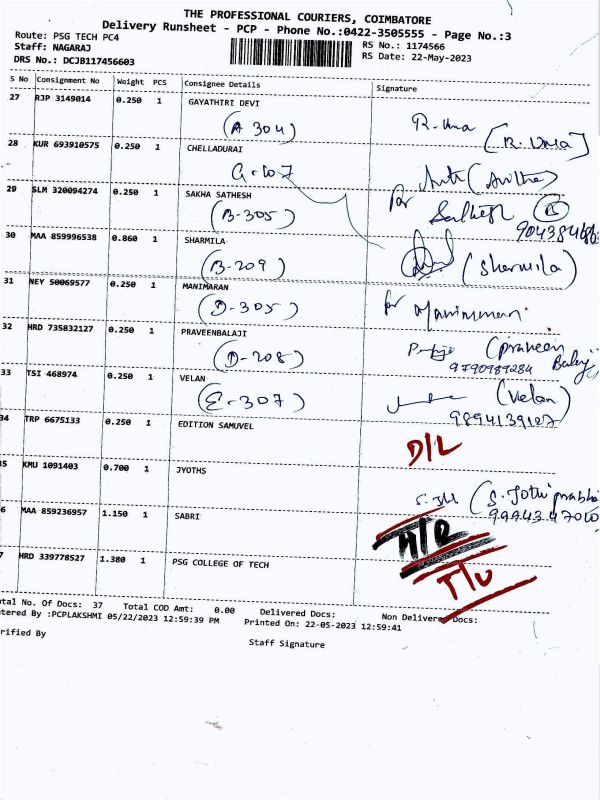 THE PROFESSIONAL COURIERS, COIMBATORE
Delivery Runsheet - PCP - Phone No.:0422-3505555 - Page No.:3
Route: PSG TECH PC4
Staff: NAGARAJ
DRS No.: DCJB117456603
RS No.: 1174566
RS Date: 22-May-2023
S No Consignment No Weight PCS Consignee Details Signature
27 RJP 3149014 0.250 1 GAYATHIRI DEVI
(A 304) R. Uma [R. Uma]
28 KUR 693910575 0.250 1 CHELLADURAI
G-107
29 SLM 320094274 0.250 1 SAKHA SATHESH
(B-305)
30 MAA 859996538 0.860 1 SHARMILA
(B-209) (Sharmila)
31 NEY 50069577 0.250 1 MANIMARAN
(D-305) for Manimaran
32 HRD 735832127 0.250 1 PRAVEENBALAJI
(D-208) (praveen Balaji)
9790989284
33 TSI 468974 0.250 1 VELAN
(E-307) (Velan)
9894139107
34 TRP 6675133 0.250 1 EDITION SAMUVEL
D/L
35 KMU 1091403 0.700 1 JYOTHS
6 MAA 859236957 1.150 1 SABRI
7 HRD 339778527 1.380 1 PSG COLLEGE OF TECH
T/U
otal No. Of Docs: 37 Total COD Amt: 0.00 Delivered Docs: Non Delivered Docs:
tered By :PCPLAKSHMI 05/22/2023 12:59:39 PM Printed On: 22-05-2023 12:59:41
rified By
Staff Signature